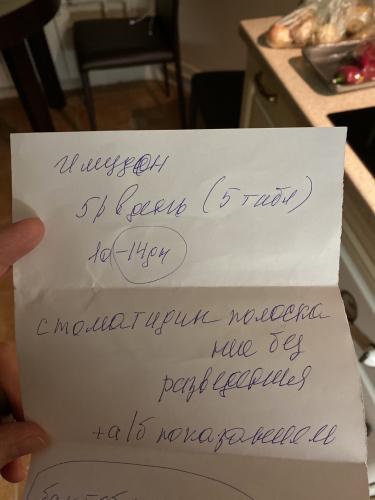 Имудон
5р в день (5 табл)
10-14дн
стоматидин полоска
ние без
разведения
+а/б показаниям